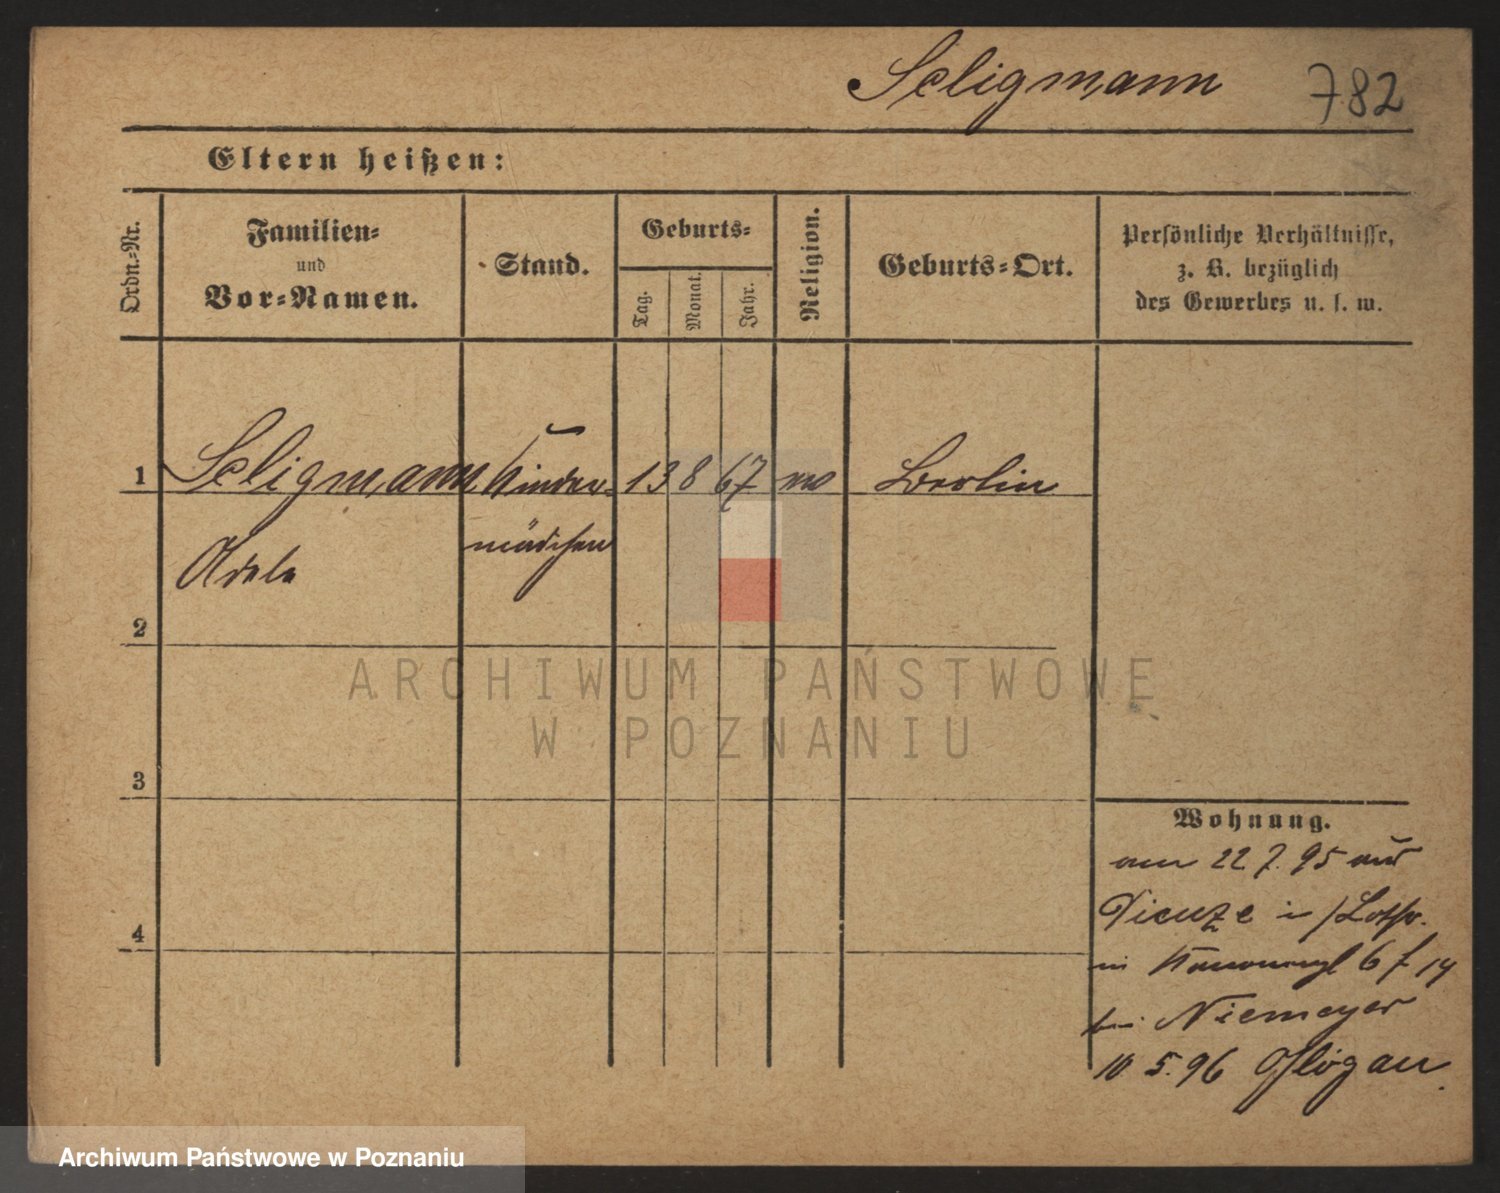 Seligmann 782
Eltern heißen:
Ordn.-Nr.
Familien-
und
Vor-Namen.
Stand.
Geburts-
Tag.
Monat.
Jahr.
Religion.
Geburts-Ort.
Persönliche Verhältnisse,
z. B. bezüglich
des Gewerbes u. s. w.
1 Seligmann Kinder- 13 8 67 Berlin
Adele mädchen
2
3
4
Wohnung.
am 22 7. 95 aus
Dieuze i /Lothr.
in 6 f 14
bei Niemeyer
10 5. 96 Glogau.
ARCHIWUM PAŃSTWOWE
W POZNANIU
Archiwum Państwowe w Poznaniu